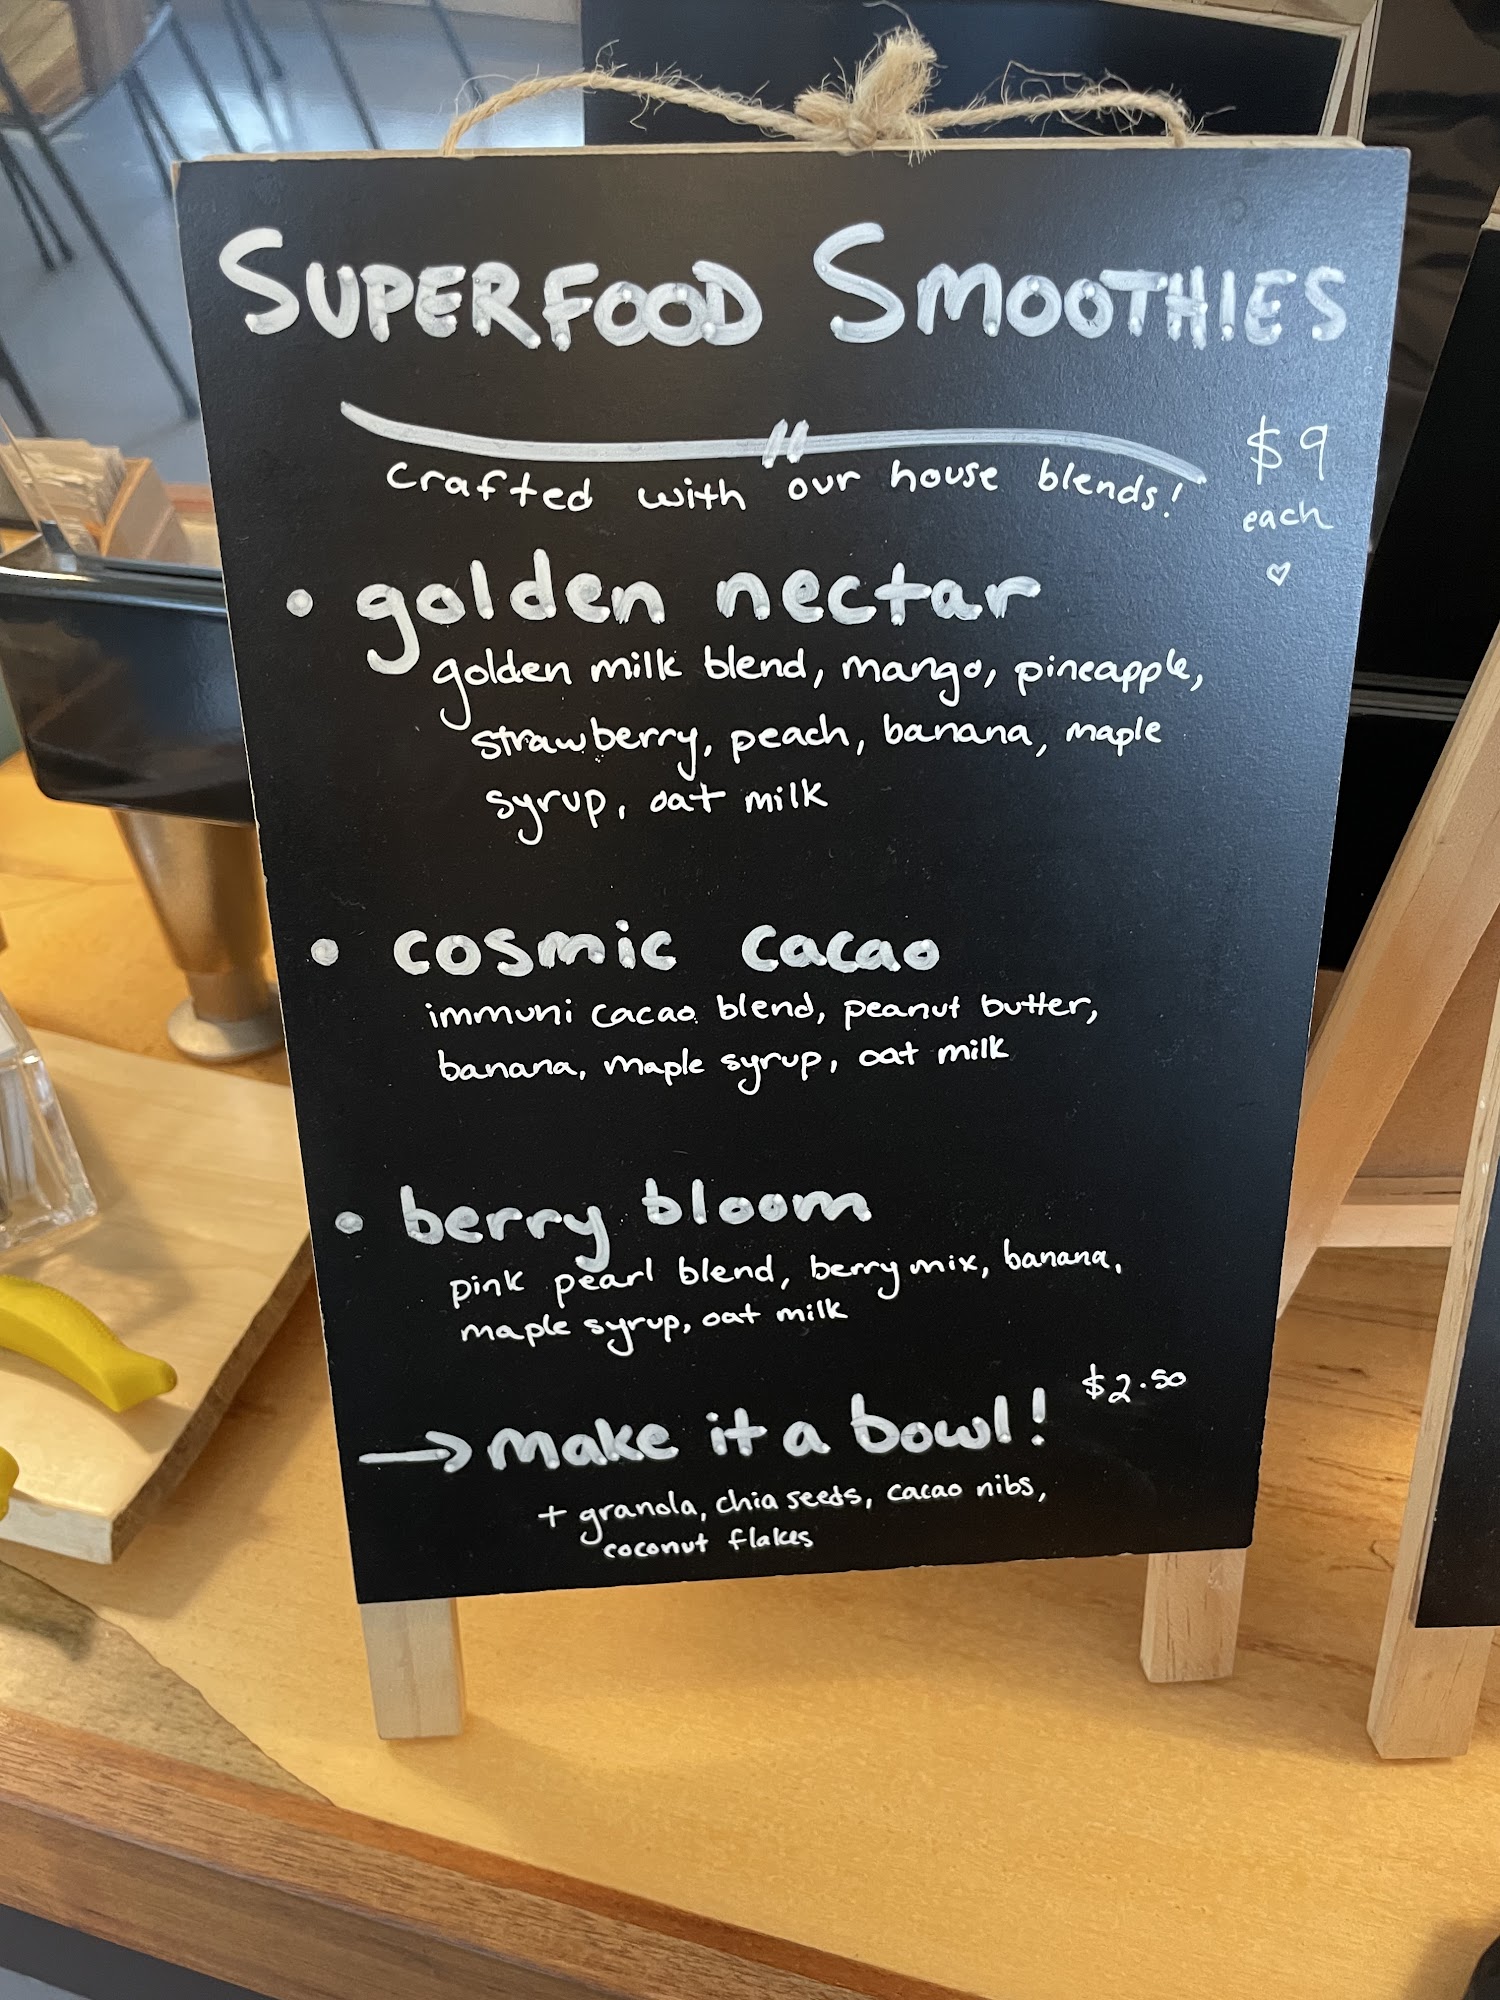 SUPERFOOD SMOOTHIES
crafted with our house blends!
$9
each
• golden nectar
golden milk blend, mango, pineapple,
strawberry, peach, banana, maple
syrup, oat milk
• cosmic cacao
immuni cacao blend, peanut butter,
banana, maple syrup, oat milk
• berry bloom
pink pearl blend, berry mix, banana,
maple syrup, oat milk
→ make it a bowl! $2.50
+ granola, chia seeds, cacao nibs,
coconut flakes